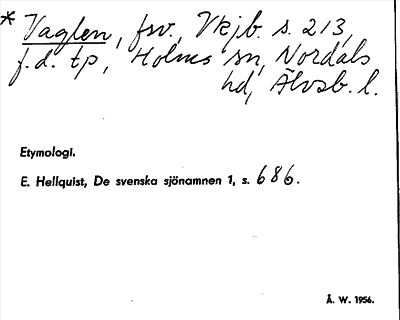 * Vaglen, fsv., Vkjb. s. 213,
f.d. tp, Holms sn, Nordals
hd, Älvsb. l.
Etymologi.
E. Hellquist, De svenska sjönamnen 1, s. 686.
Å. W. 1956.